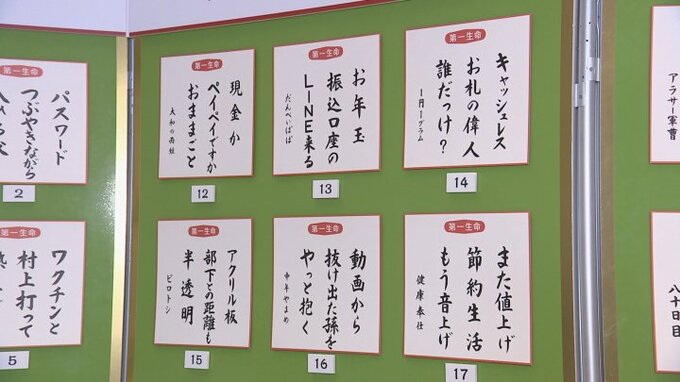 第一生命
パスワード
つぶやきながら
2
第一生命
現金か
ペイペイですか
おままごと
大和の雨蛙
12
第一生命
お年玉
振込口座の
LINE来る
だんぺいぱぱ
13
第一生命
キャッシュレス
お札の偉人
誰だっけ?
1円1グラム
14
アラサー軍曹
第一生命
ワクチンと
村上打って
5
第一生命
アクリル板
部下との距離も
半透明
ピロトシ
15
第一生命
動画から
抜け出た孫を
やっと抱く
中年やまめ
16
第一生命
また値上げ
節約生活
もう音上げ
健康奉仕
17
八十日目